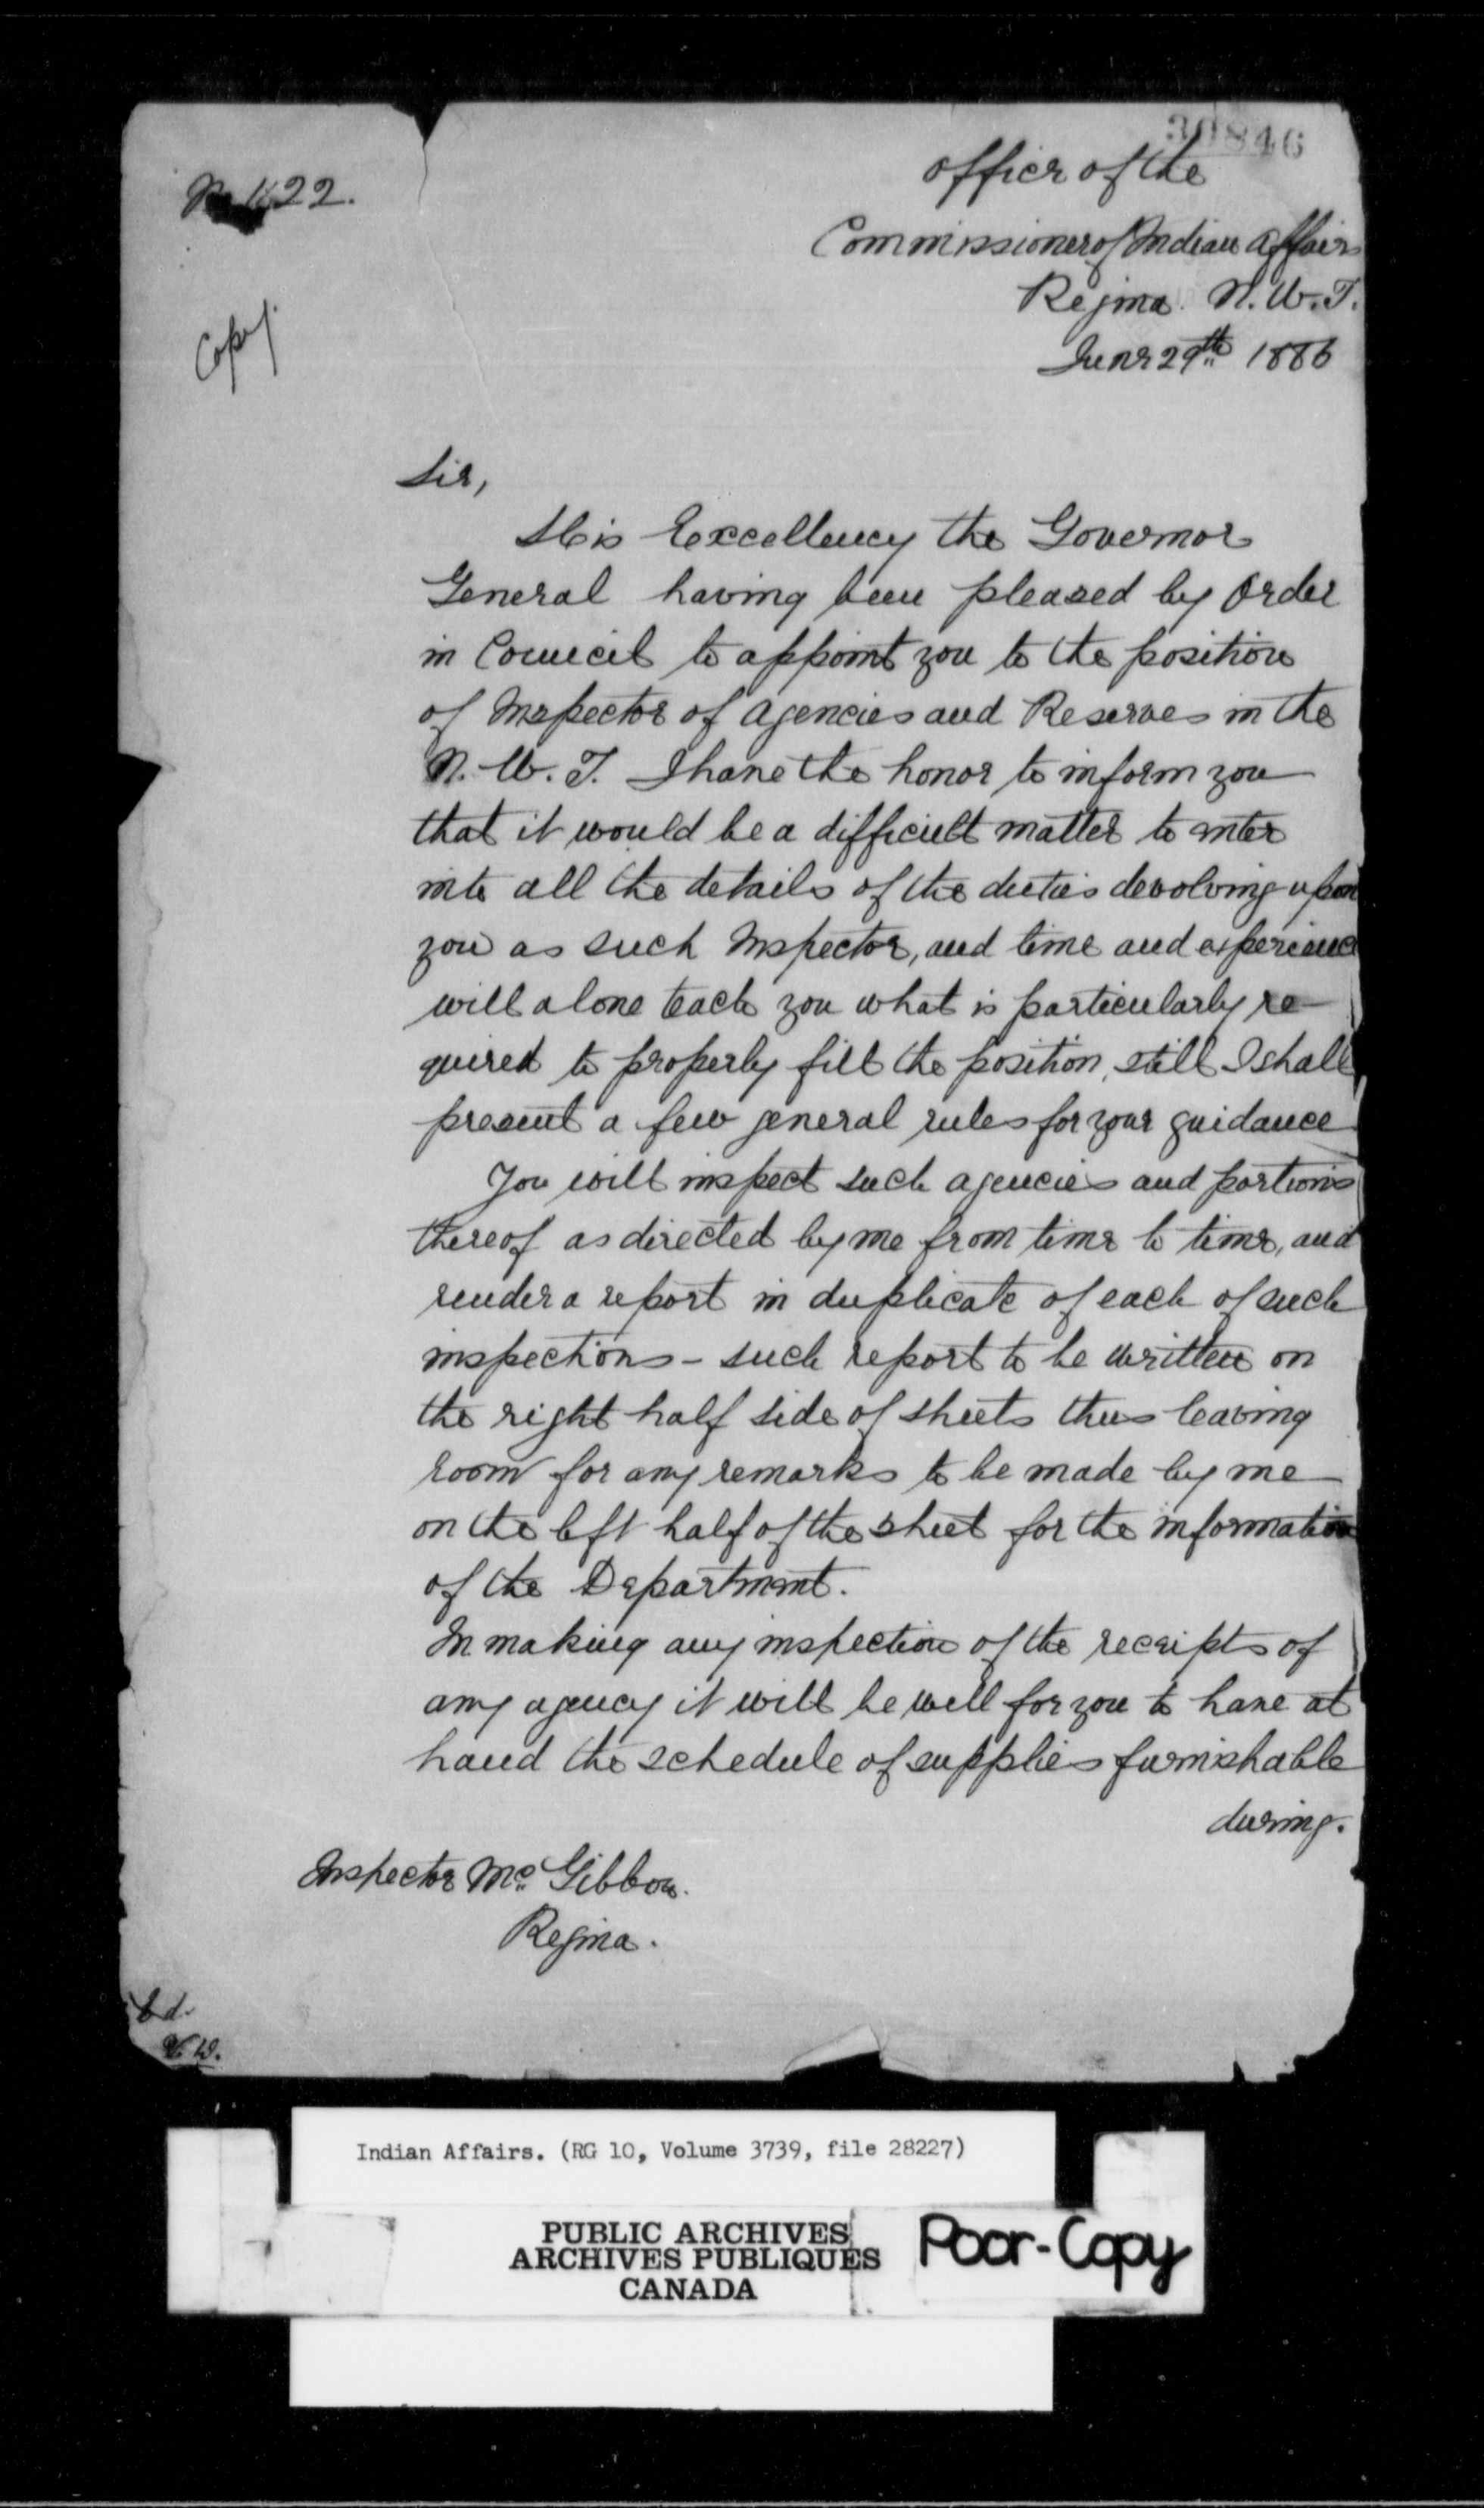 30846
No 1122.
Office of the
Commissioner of Indian Affairs
Regina. N.W.T.
June 29th 1886
Copy.
Sir,
His Excellency the Governor
General having been pleased by Order
in Council to appoint you to the position
of Inspector of Agencies and Reserves in the
N.W.T. I have the honor to inform you
that it would be a difficult matter to enter
into all the details of the duties devolving upon
you as such Inspector, and time and experience
will alone teach you what is particularly re-
quired to properly fill the position, still I shall
present a few general rules for your guidance
You will inspect such agencies and portions
thereof as directed by me from time to time, and
render a report in duplicate of each of such
inspections - such report to be written on
the right half side of sheets thus leaving
room for any remarks to be made by me
on the left half of the sheet for the information
of the Department.
In making any inspection of the receipts of
any agency it will be well for you to have at
hand the schedule of supplies furnishable
during.
Inspector McGibbon.
Regina.
Indian Affairs. (RG 10, Volume 3739, file 28227)
PUBLIC ARCHIVES
ARCHIVES PUBLIQUES
CANADA
Poor-Copy